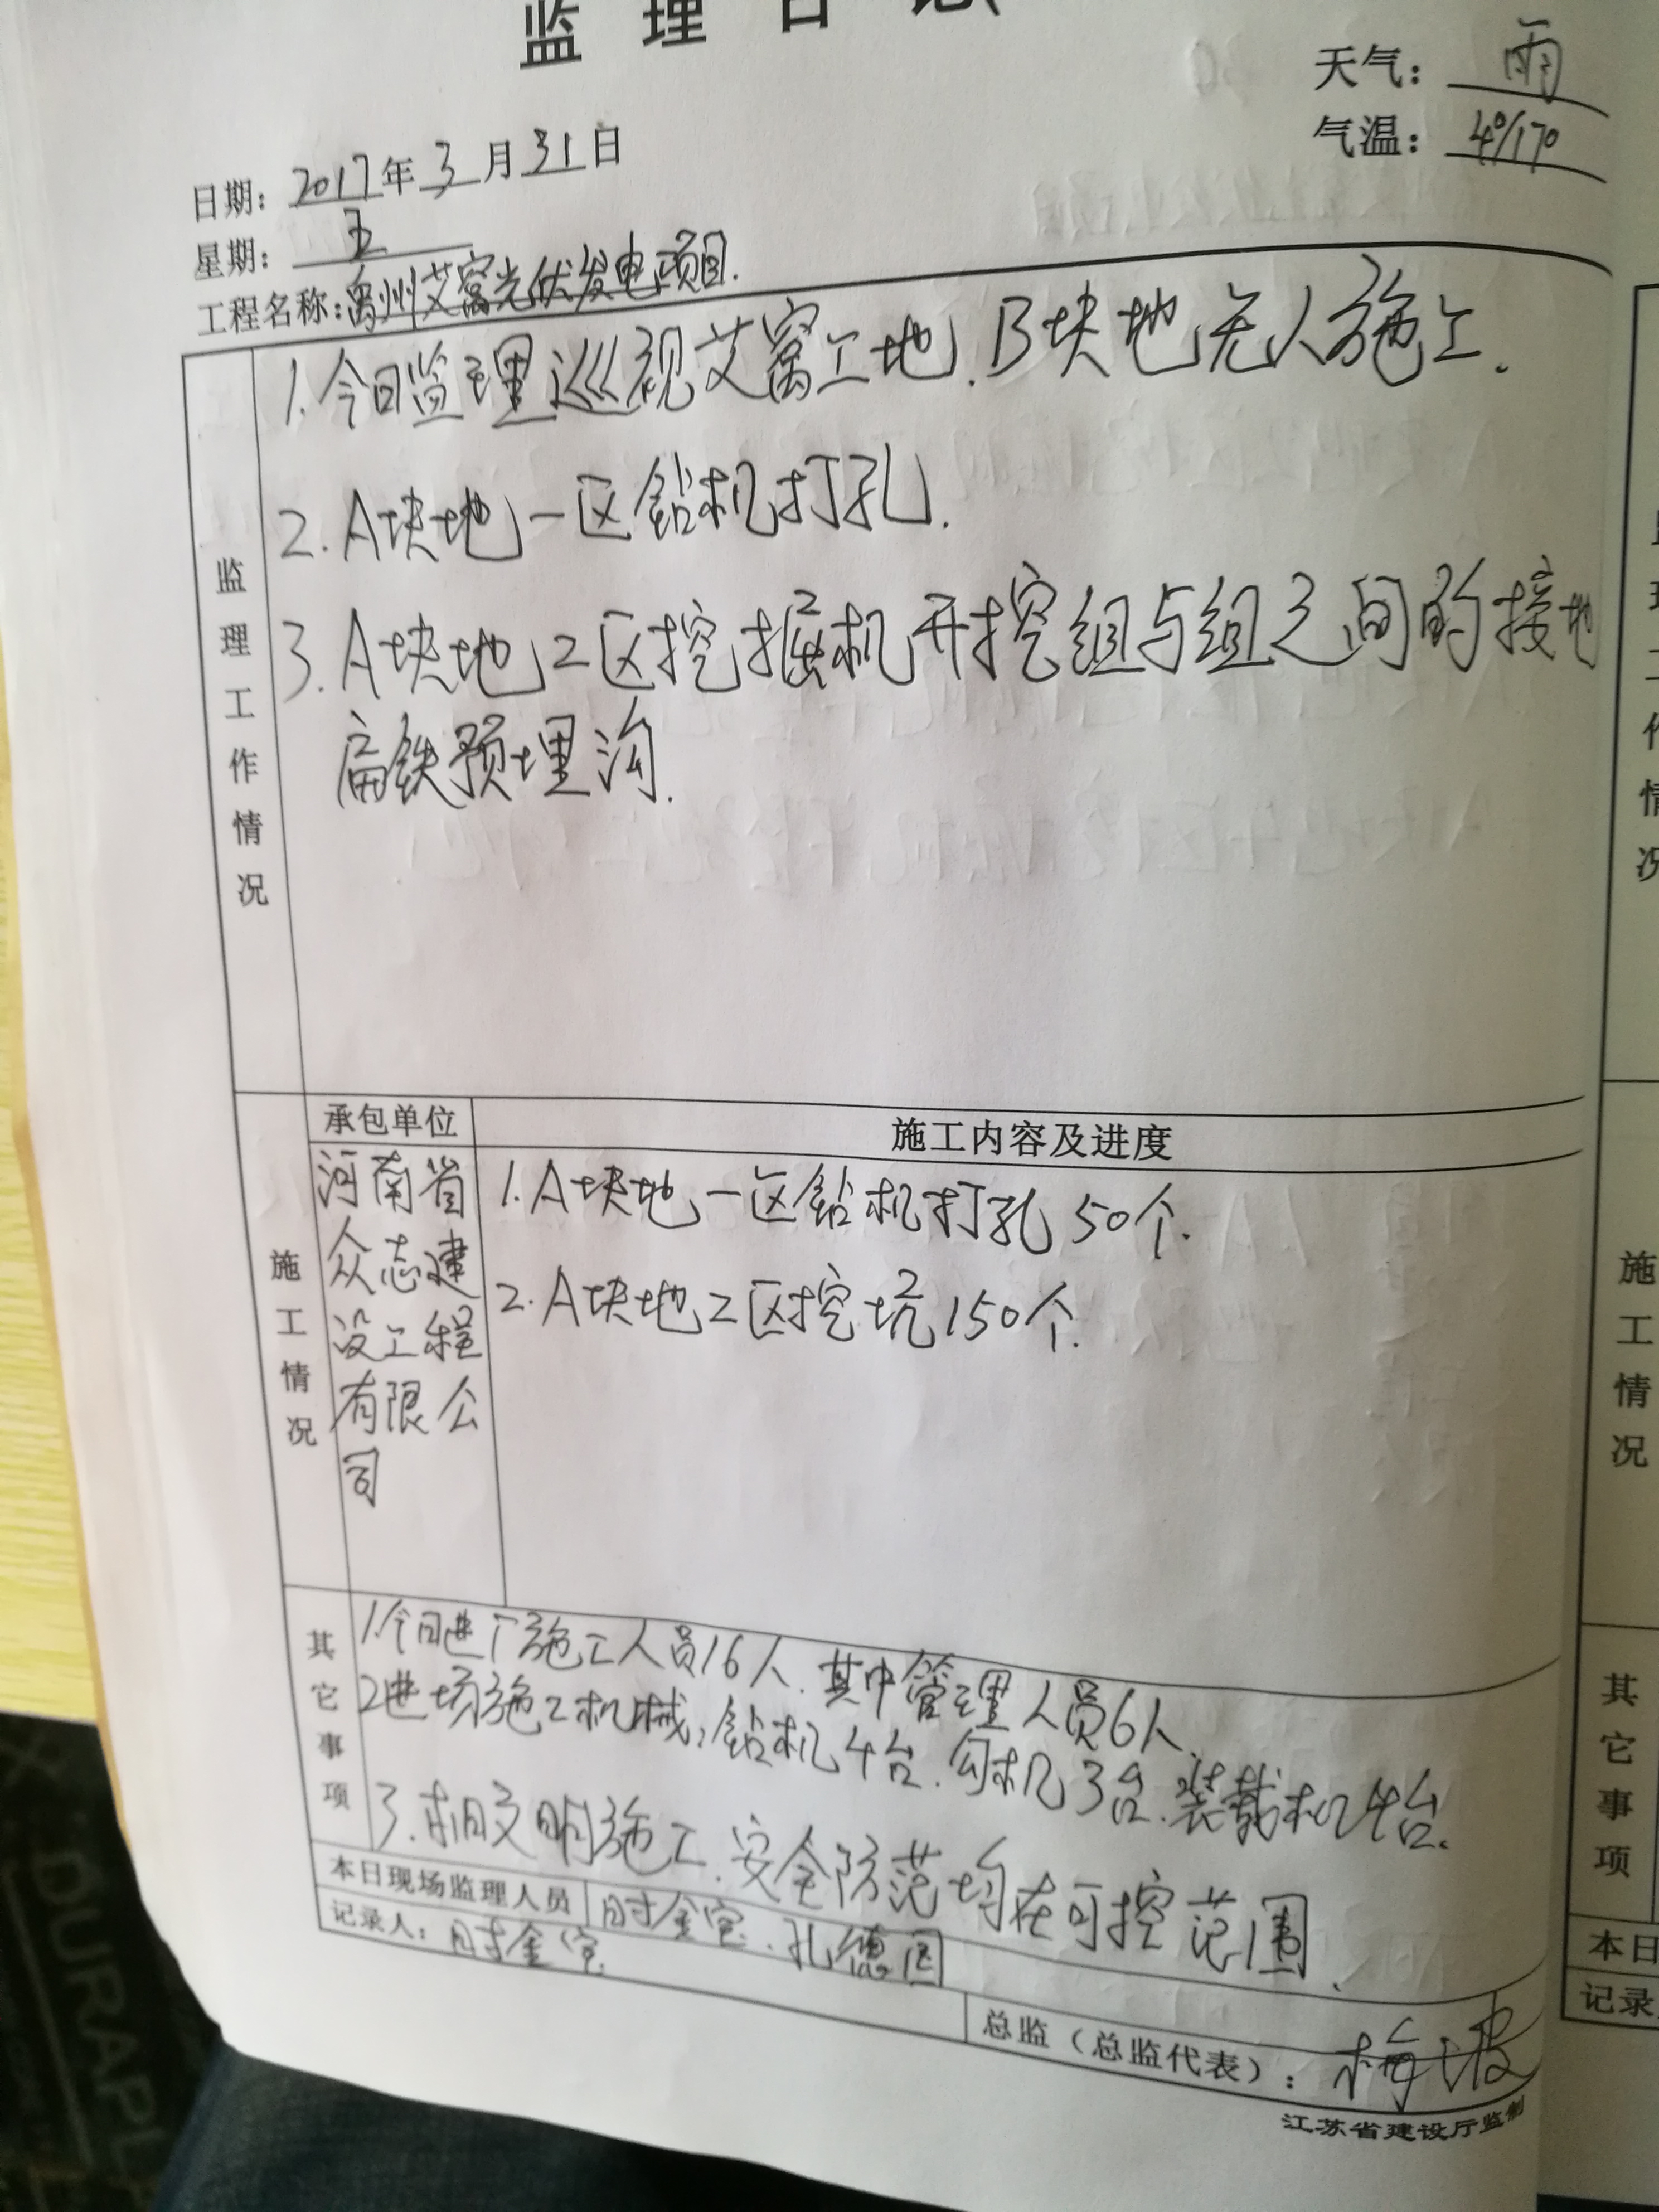 监理日记
天气：雨
气温：4°/17°
日期：2017年3月31日
星期：五
工程名称：禹州艾窝光伏发电项目.
监理工作情况
1.今日监理巡视艾窝工地.B块地无人施工.
2.A块地一区钻机打孔.
3.A块地2区挖掘机开挖组与组之间的接地
扁铁预埋沟.
施工情况
承包单位
施工内容及进度
河南省
众志建
设工程
有限公
司
1.A块地一区钻机打孔50个.
2.A块地2区挖坑150个.
其它事项
1.今日进厂施工人员16人.其中管理人员6人.
2进场施工机械:钻机4台.勾机3台.装载机4台.
3.文明施工.安全防范均在可控范围.
本日现场监理人员
时金宝.孔德国
记录人：时金宝.
总监（总监代表）：梅波
江苏省建设厅监制
施工情况
其它事项
本日
记录
DURAPL